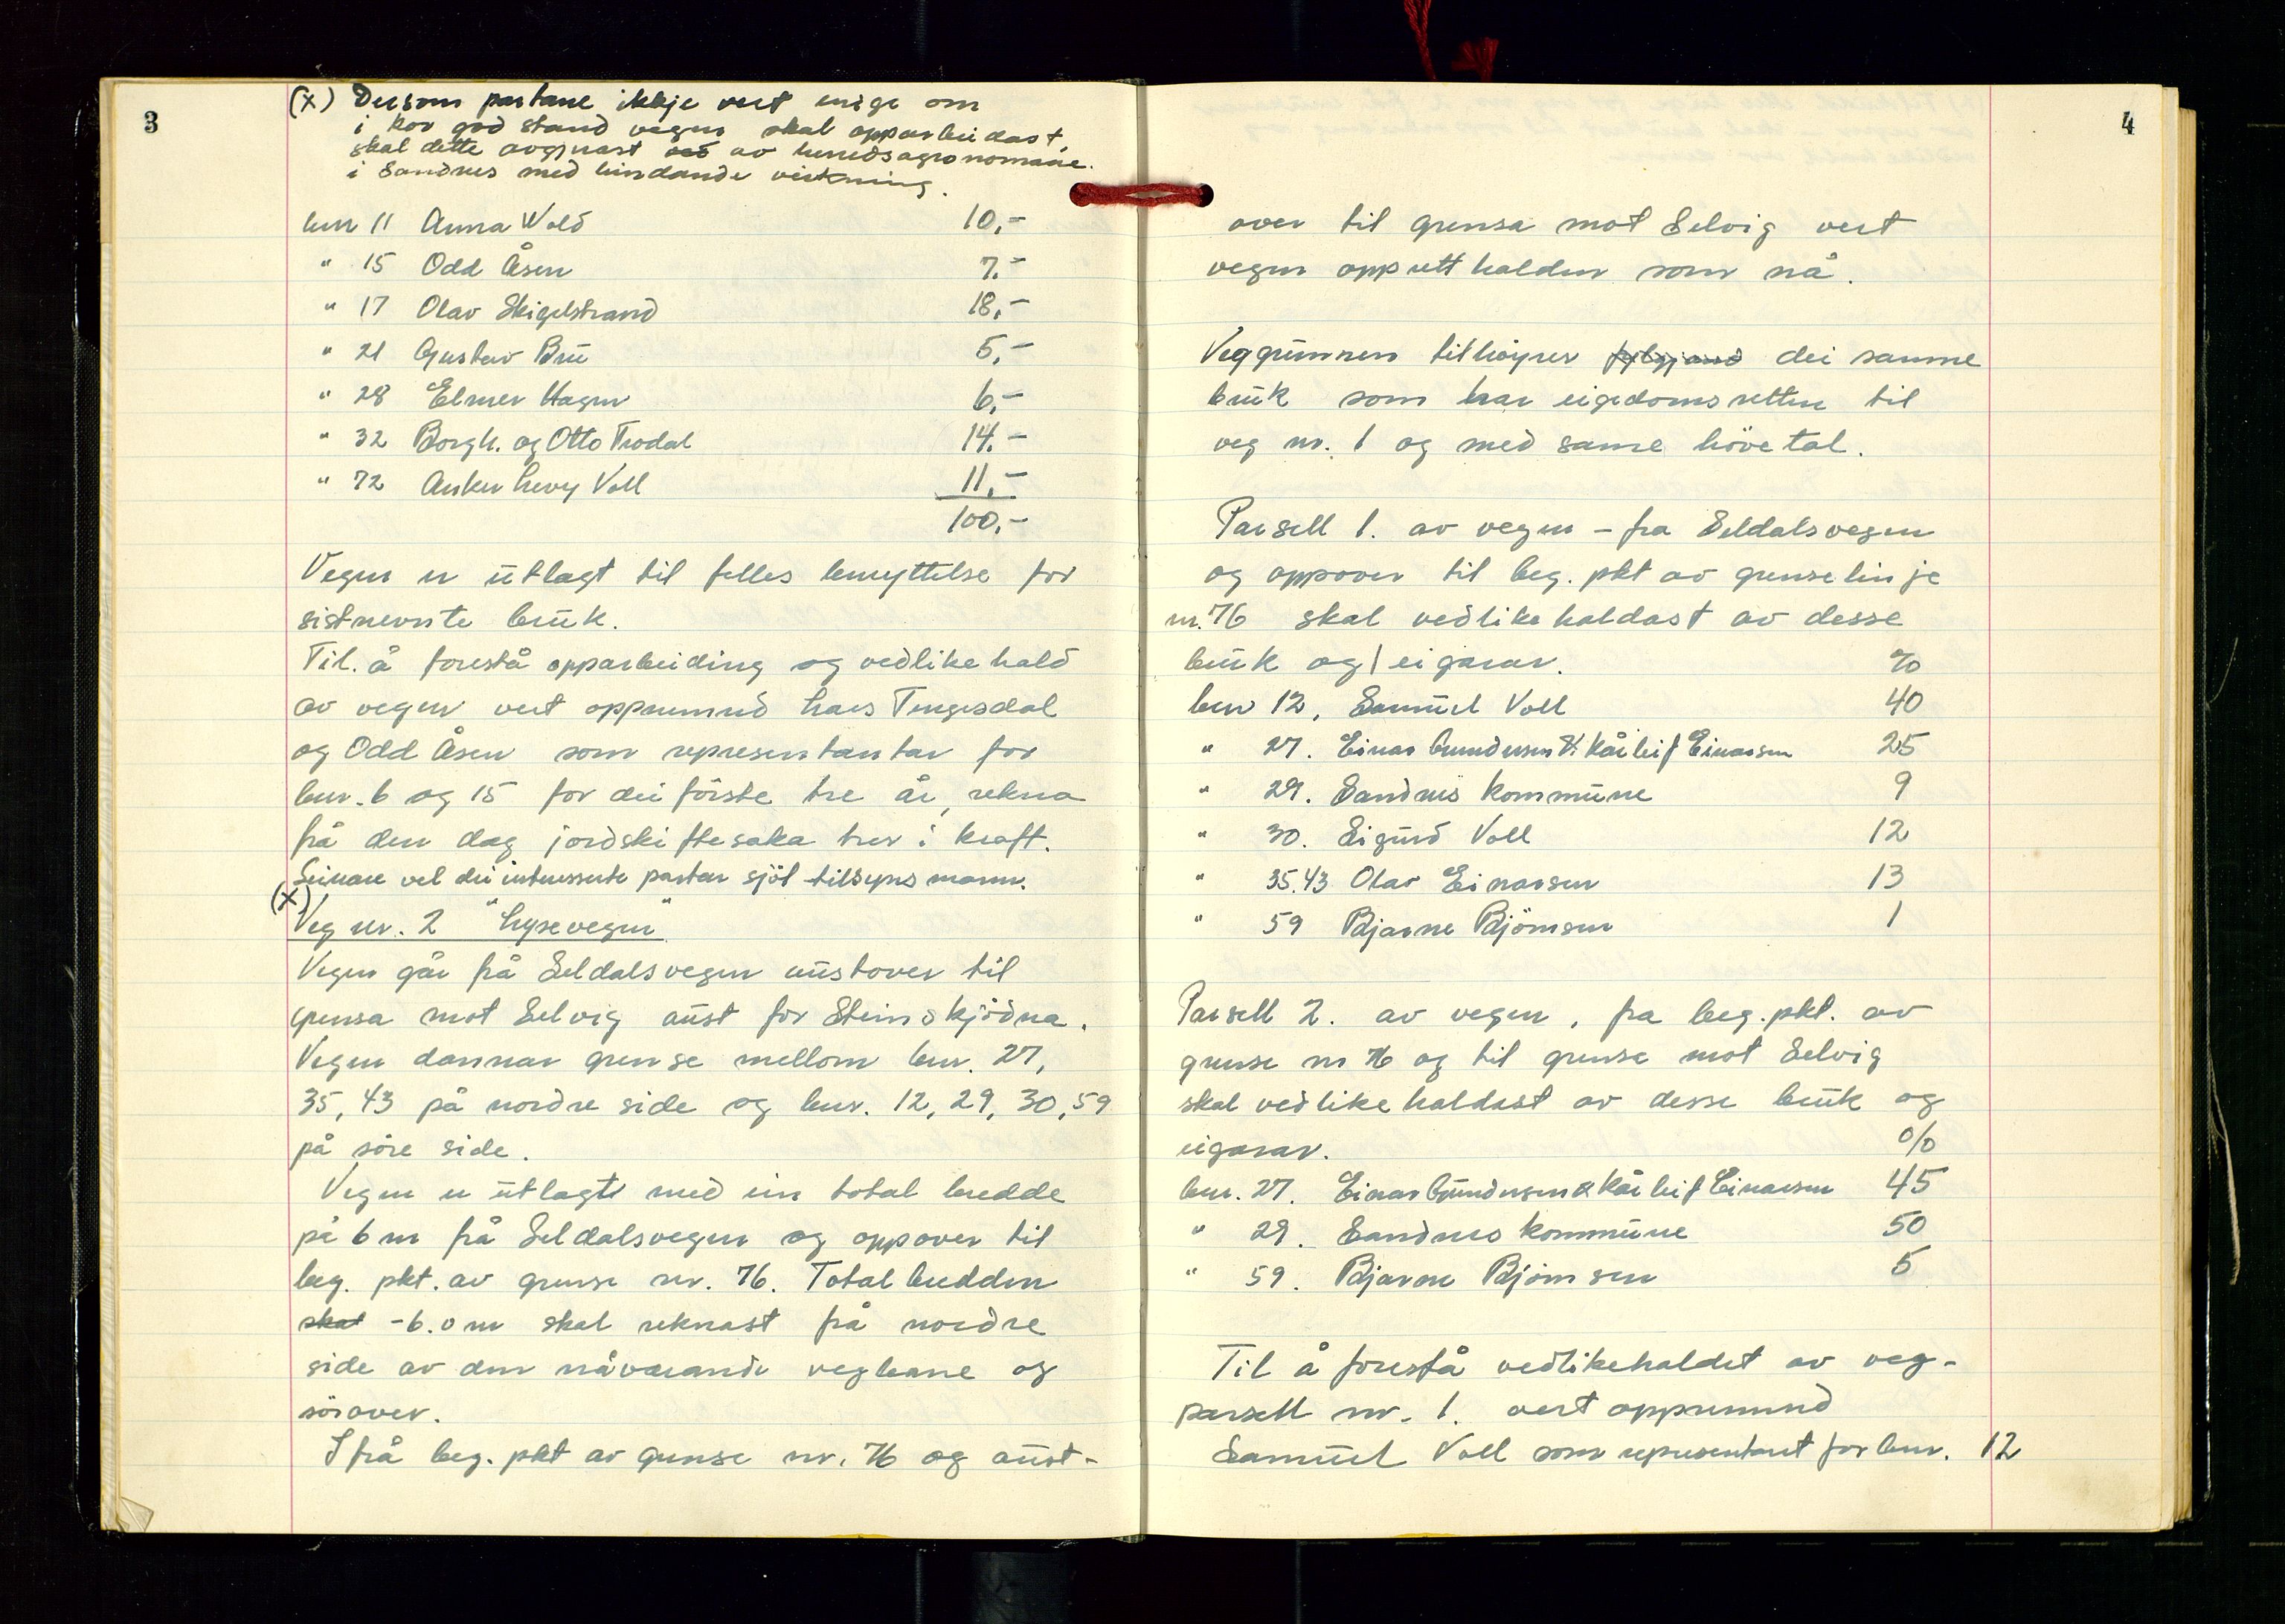 3
(x) Dersom partane ikkje vert enige om
i kor god stand vegen skal opparbeidast,
skal dette avgjerast av herredsagronomane
i Sandnes med bindande verkning.
bnr 11 Anna Wold 10,-
" 15 Odd Åsen 7.-
" 17 Olav Skigelstrand 18,-
" 21 Gustav Bru 5,-
" 28 Elmer Hagen 6,-
" 32 Borgh. og Otto Trodal 14.-
" 72 Anker Levy Voll 11,-
100,-
Vegen er utlagt til felles benyttelse for
sistnevnte bruk.
Til å forestå opparbeiding og vedlikehald
av vegen vert oppnemnd Lars Tengesdal
og Odd Åsen som representantar for
bnr. 6 og 15 for dei förste tre år, rekna
frå den dag jordskiftesaka trer i kraft.
Seinare vel dei interesserte partar sjöl tilsynsmann.
(x)
Veg nr. 2 "Lysevegen"
Vegen går frå Seldalsvegen austover til
grensa mot Selvig aust for Steinskjödna.
Vegen dannar grense mellom bnr. 27,
35, 43 på nordre side og bnr. 12, 29, 30, 59
på söre side.
Vegen er utlagt med ein total bredde
på 6 m frå Seldalsvegen og oppover til
beg. pkt. av grense nr. 76. Totalbredden
skal -6.0 m skal reknast frå nordre
side av den nåværande vegbane og
sörover.
Ifrå beg. pkt av grense nr. 76 og aust-
4
over til grensa mot Selvig vert
vegen opprettholden som nå.
Veggrunnen tilhöyrer fylgjand dei samme
bruk som har eigedomsretten til
veg nr. 1 og med same hövetal.
Parsell 1. av vegen - fra Seldalsvegen
og oppover til beg. pkt av grenselinje
nr. 76 skal vedlikehaldast av desse
bruk og eigarar. %
bnr 12, Samuel Voll 40
" 27. Einar Gundersen & Kåre Leif Einarsen 25
" 29. Sandnes kommune 9
" 30. Sigurd Voll 12
" 35.43 Olav Einarsen 13
" 59 Bjarne Björnsen 1
Parsell 2. av vegen, fra beg. pkt. av
grense nr 76 og til grense mot Selvig
skal vedlikehaldast av desse bruk og
eigarar. %
bnr. 27. Einar Gundersen & Kåre Leif Einarsen 45
" 29. Sandnes kommune 50
" 59. Bjarne Björnsen 5
Til å forestå vedlikehaldet av veg-
parsell nr. 1. vert oppnemnd
Samuel Voll som representant for bnr. 12